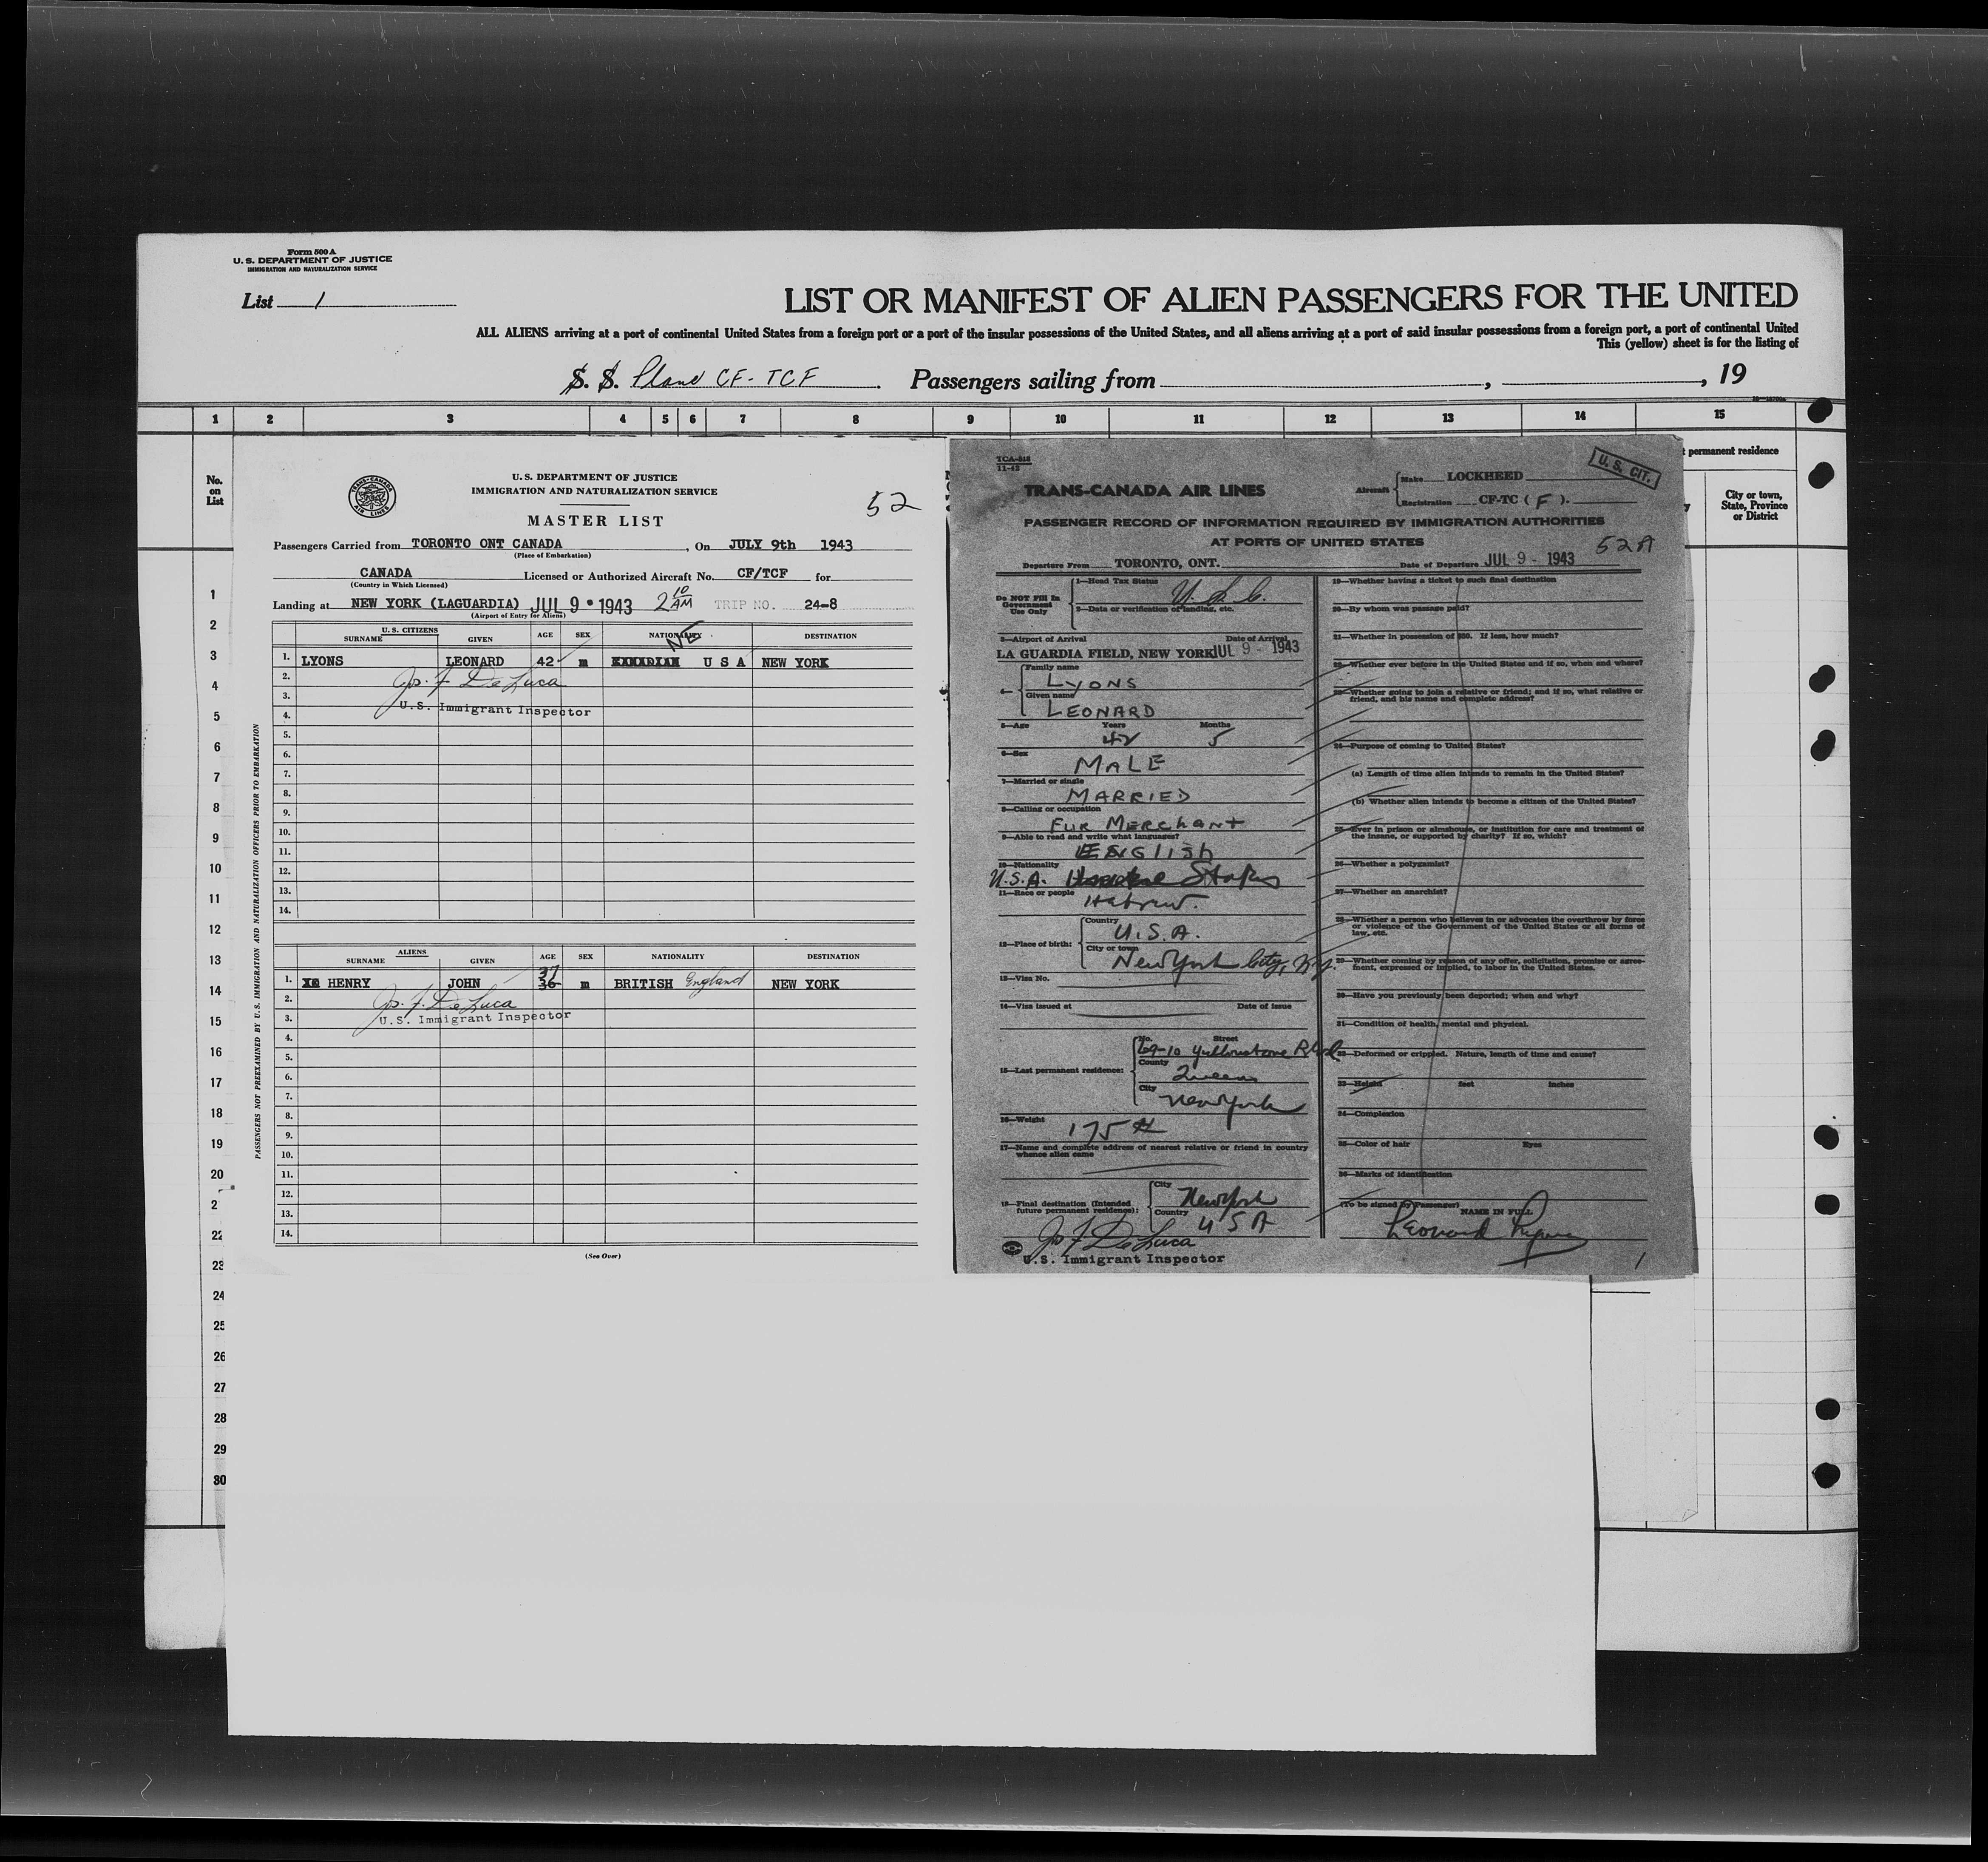 Form 500 A
U. S. DEPARTMENT OF JUSTICE
IMMIGRATION AND NATURALIZATION SERVICE
List 1
LIST OR MANIFEST OF ALIEN PASSENGERS FOR THE UNITED
ALL ALIENS arriving at a port of continental United States from a foreign port or a port of the insular possessions of the United States, and all aliens arriving at a port of said insular possessions from a foreign port, a port of continental United
This (yellow) sheet is for the listing of
S. S. Plane CF-TCF. Passengers sailing from , , 19
1 2 3 4 5 6 7 8 9 10 11 12 13 14 15
No. on List
permanent residence
City or town, State, Province or District
1
2
3
4
5
6
7
8
9
10
11
12
13
14
15
16
17
18
19
20
2
22
23
24
25
26
27
28
29
30
TRANS-CANADA AIR LINES
U. S. DEPARTMENT OF JUSTICE
IMMIGRATION AND NATURALIZATION SERVICE
52
MASTER LIST
Passengers Carried from TORONTO ONT CANADA , On JULY 9th 1943
(Place of Embarkation)
CANADA Licensed or Authorized Aircraft No. CF/TCF for
(Country in Which Licensed)
Landing at NEW YORK (LAGUARDIA) JUL 9 • 1943 2 10 AM TRIP NO. 24-8
(Airport of Entry for Aliens)
U. S. CITIZENS
SURNAME GIVEN AGE SEX NATIONALITY DESTINATION
1. LYONS LEONARD 42 m U S A NEW YORK
2. Jos. F. De Luca
3.
4. U.S. Immigrant Inspector
5.
6.
7.
8.
9.
10.
11.
12.
13.
14.
ALIENS
SURNAME GIVEN AGE SEX NATIONALITY DESTINATION
37
1. HENRY JOHN 36 m BRITISH England NEW YORK
2. Jos. F. De Luca
3. U.S. Immigrant Inspector
4.
5.
6.
7.
8.
9.
10.
11.
12.
13.
14.
(See Over)
PASSENGERS NOT PREEXAMINED BY U. S. IMMIGRATION AND NATURALIZATION OFFICERS PRIOR TO EMBARKATION
TCA-518
11-42
U. S. CIT.
TRANS-CANADA AIR LINES
Aircraft Make LOCKHEED
Registration CF-TC ( F ).
PASSENGER RECORD OF INFORMATION REQUIRED BY IMMIGRATION AUTHORITIES
AT PORTS OF UNITED STATES
52A
Departure From TORONTO, ONT. Date of Departure JUL 9 - 1943
Do NOT Fill In Government Use Only
1—Head Tax Status U. S. C.
2—Data or verification of landing, etc.
3—Airport of Arrival Date of Arrival
LA GUARDIA FIELD, NEW YORK JUL 9 - 1943
4— Family name
LYONS
Given name
LEONARD
5—Age Years Months
42 5
6—Sex
MALE
7—Married or single
MARRIED
8—Calling or occupation
FUR MERCHANT
9—Able to read and write what languages?
ENGLISH
10—Nationality
U.S.A. States
11—Race or people
Hebrew.
12—Place of birth: Country
U.S.A.
City or town
New York City, N.Y.
13—Visa No.
14—Visa issued at Date of Issue
15—Last permanent residence: No. Street
69-10 Yellowstone Blvd
County
Queens
City
New York
16—Weight
175 #
17—Name and complete address of nearest relative or friend in country whence alien came
18—Final destination (Intended future permanent residence): City
New York
Country
U S A
Jos F De Luca
U.S. Immigrant Inspector
19—Whether having a ticket to such final destination
20—By whom was passage paid?
21—Whether in possession of $50. If less, how much?
22—Whether ever before in the United States and if so, when and where?
23—Whether going to join a relative or friend; and if so, what relative or friend, and his name and complete address?
24—Purpose of coming to United States?
(a) Length of time alien intends to remain in the United States?
(b) Whether alien intends to become a citizen of the United States?
25—Ever in prison or almshouse, or institution for care and treatment of the insane, or supported by charity? If so, which?
26—Whether a polygamist?
27—Whether an anarchist?
28—Whether a person who believes in or advocates the overthrow by force or violence of the Government of the United States or all forms of law, etc.
29—Whether coming by reason of any offer, solicitation, promise or agreement, expressed or implied, to labor in the United States.
30—Have you previously been deported; when and why?
31—Condition of health, mental and physical.
32—Deformed or crippled. Nature, length of time and cause?
33—Height feet inches
34—Complexion
35—Color of hair Eyes
36—Marks of identification
(To be signed by Passenger) NAME IN FULL
Leonard Lyons
1